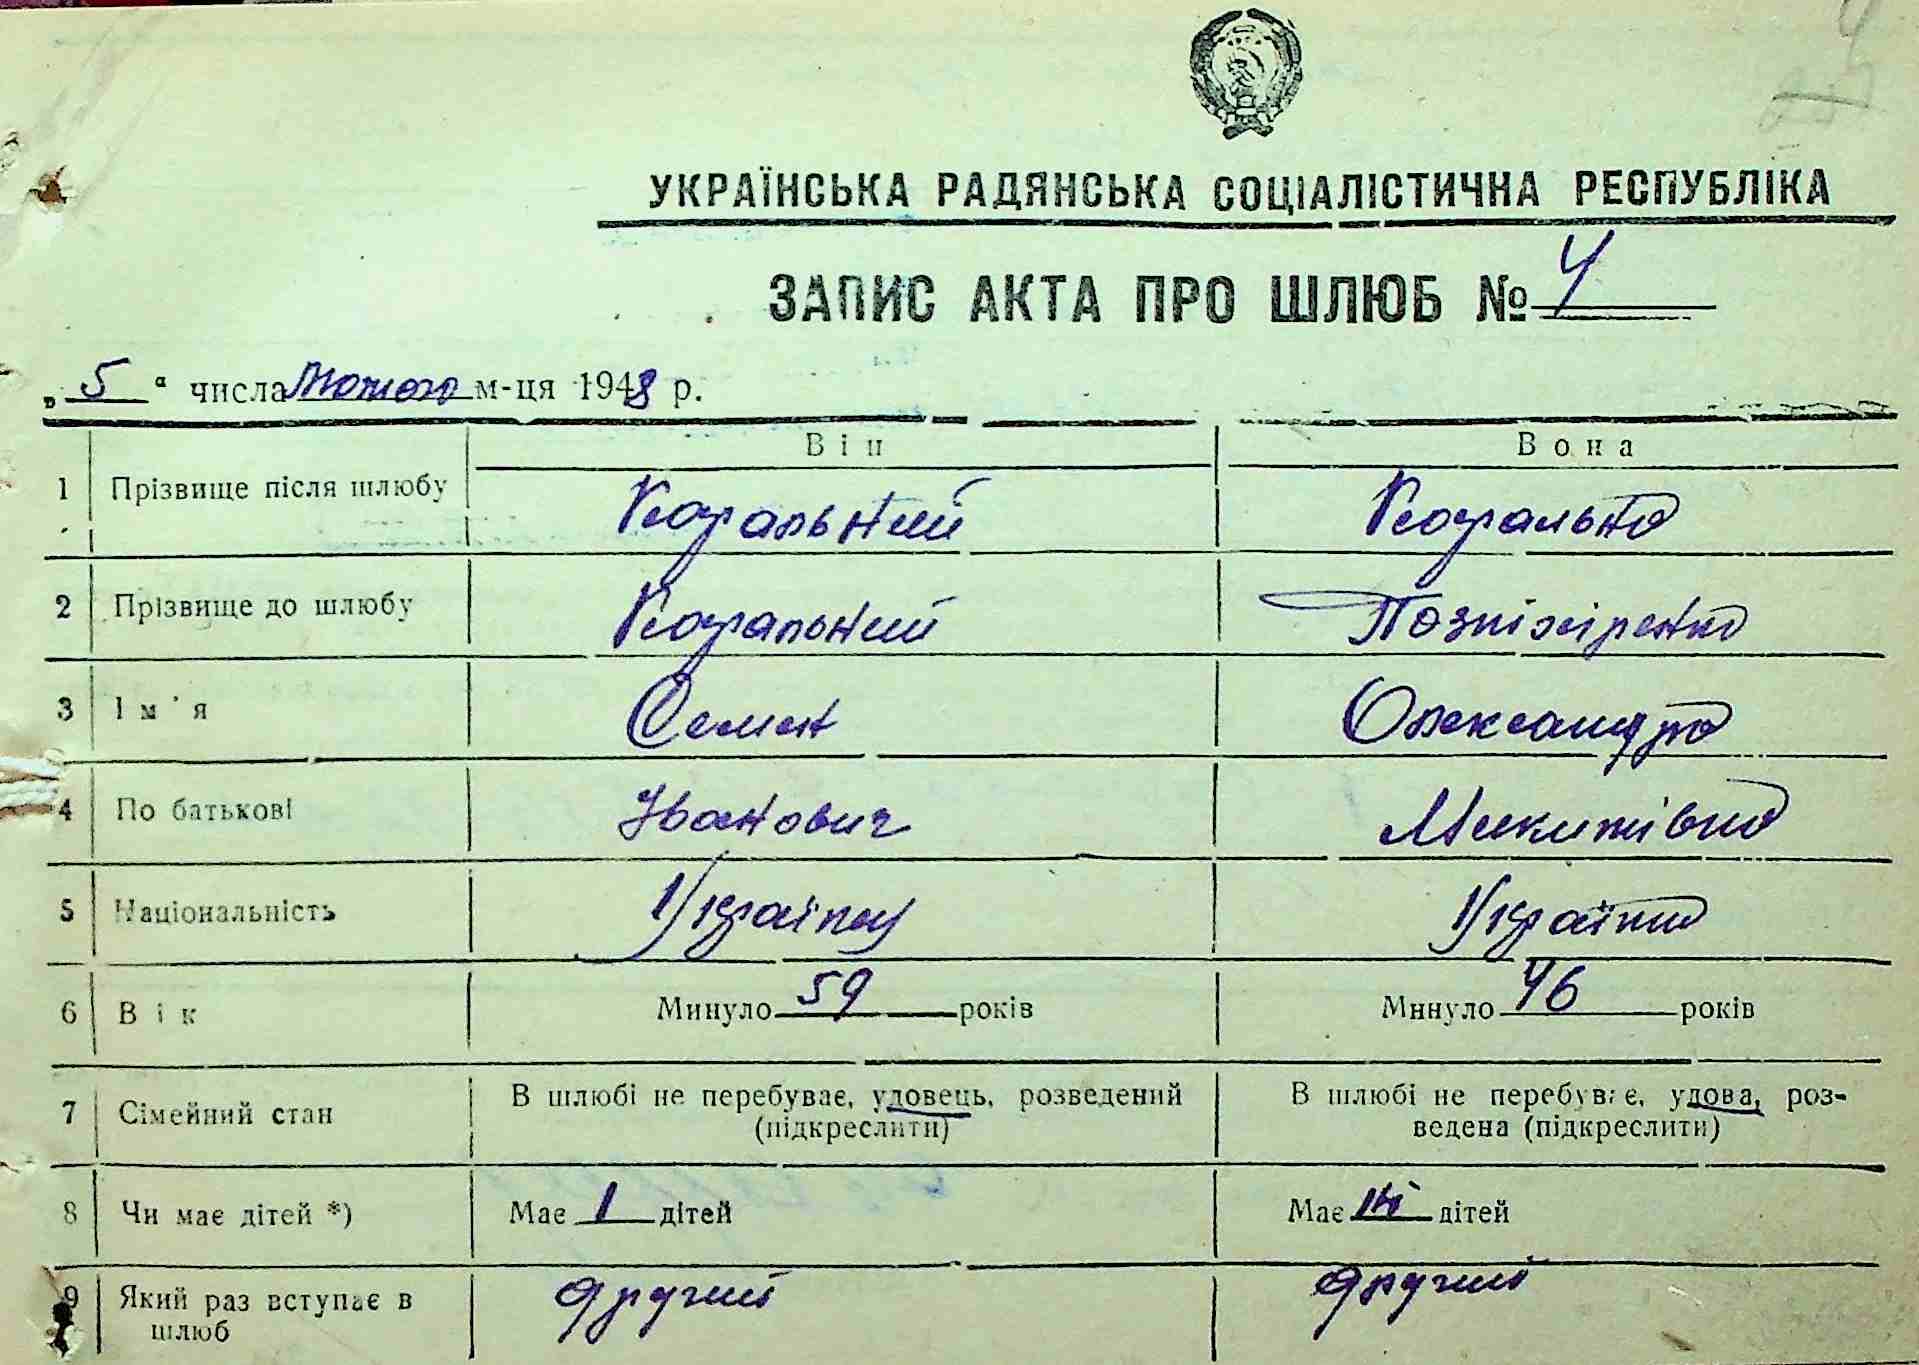 УКРАЇНСЬКА РАДЯНСЬКА СОЦІАЛІСТИЧНА РЕСПУБЛІКА
ЗАПИС АКТА ПРО ШЛЮБ № 4
„ 5 “ числа Лютого м-ця 1948 р.
Він Вона
1 Прізвище після шлюбу
2 Прізвище до шлюбу
3 Ім'я Семен Олександра
4 По батькові Іванович Микитівна
5 Національність Українец Українка
6 Вік Минуло 59 років Минуло 46 років
7 Сімейний стан В шлюбі не перебуває, удовець, розведений (підкреслити) В шлюбі не перебуває, удова, роз-
ведена (підкреслити)
8 Чи має дітей *) Має 1 дітей Має дітей
9 Який раз вступає в шлюб другий другий